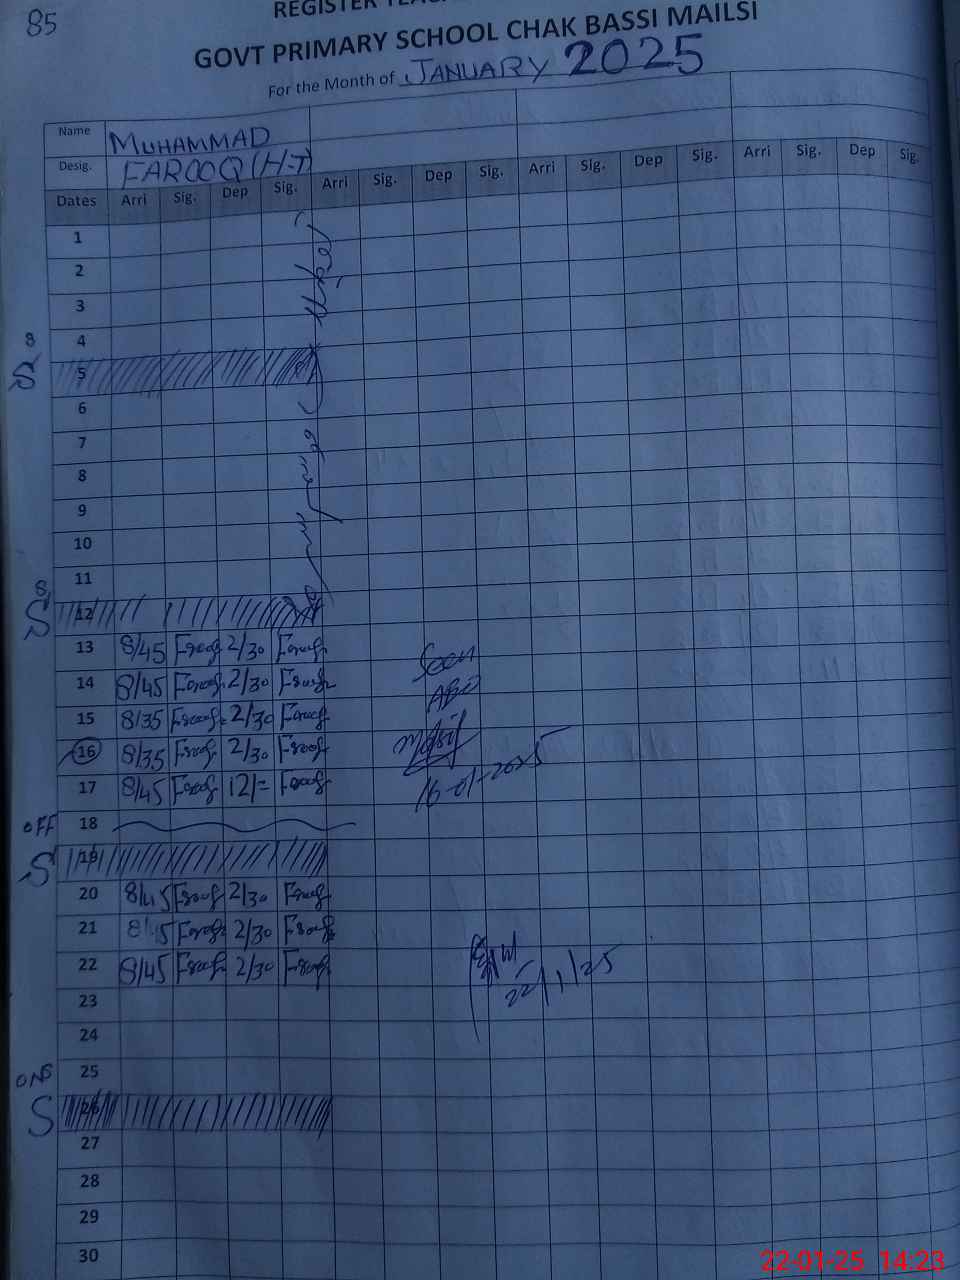 85
REGISTER
GOVT PRIMARY SCHOOL CHAK BASSI MAILSI
For the Month of JANUARY 2025
Name MUHAMMAD
Desig. FAROOQ (H-T)
Dates Arri Sig. Dep Sig. Arri Sig. Dep Sig. Arri Sig. Dep Sig. Arri Sig. Dep Sig.
1
2
3
4
5
6
7
8
9
10
11
S 12
13 8/45 Farooq 2/30 Farooq
14 8/45 Farooq 2/30 Farooq
15 8/35 Farooq 2/30 Farooq
16 8/35 Farooq 2/30 Farooq
17 8/45 Farooq 12/= Farooq
Seen
16-01-2025
OFF 18
S 19
20 8/45 Farooq 2/30 Farooq
21 8/45 Farooq 2/30 Farooq
22 8/45 Farooq 2/30 Farooq
22/1/25
23
24
25
S 26
27
28
29
30
22-01-25 14:23